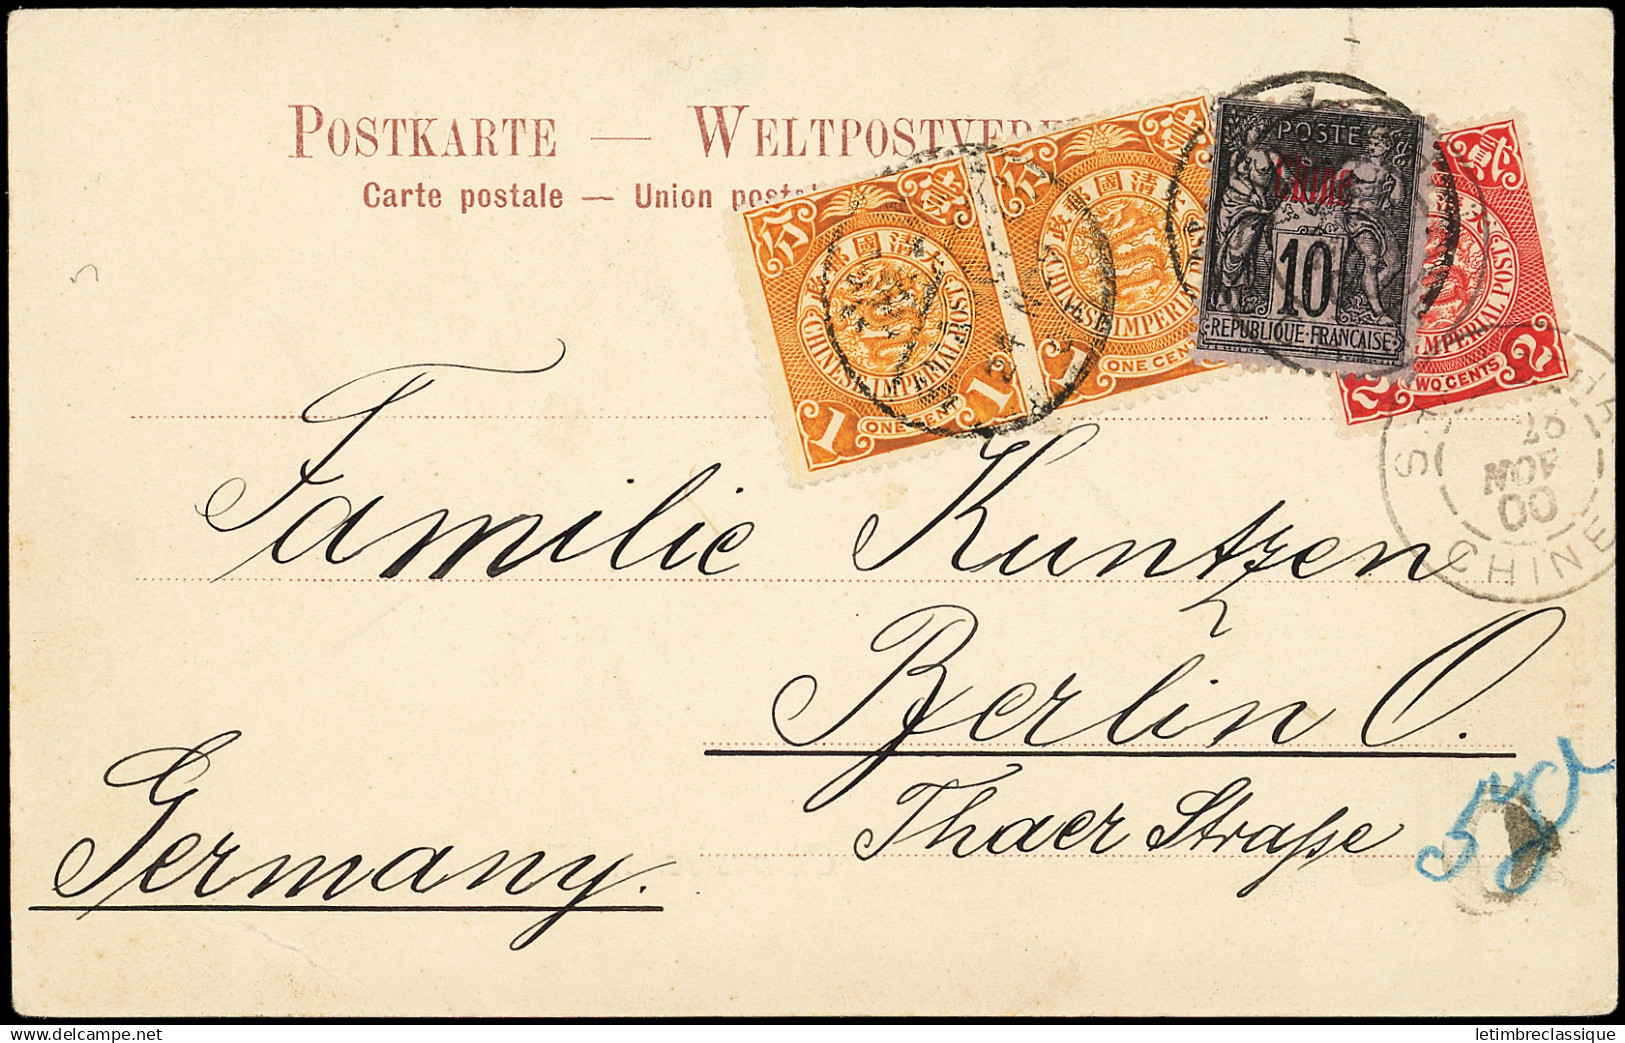 POSTKARTE — WELTPOSTVERE
Carte postale — Union postal
分 大清國郵政 壹
CHINESE IMPERIAL POST
1 ONE CENT 1
分 大清國郵政 壹
CHINESE IMPERIAL POST
1 ONE CENT
POSTE
Chine
10
REPUBLIQUE FRANÇAISE
貳
IMPERIAL POST
2 TWO CENTS 2
27
NOV
00
CHINE
Familie Kuntzen
Berlin O.
Thaer Straße
Germany.
delcampe.net
letimbreclassique